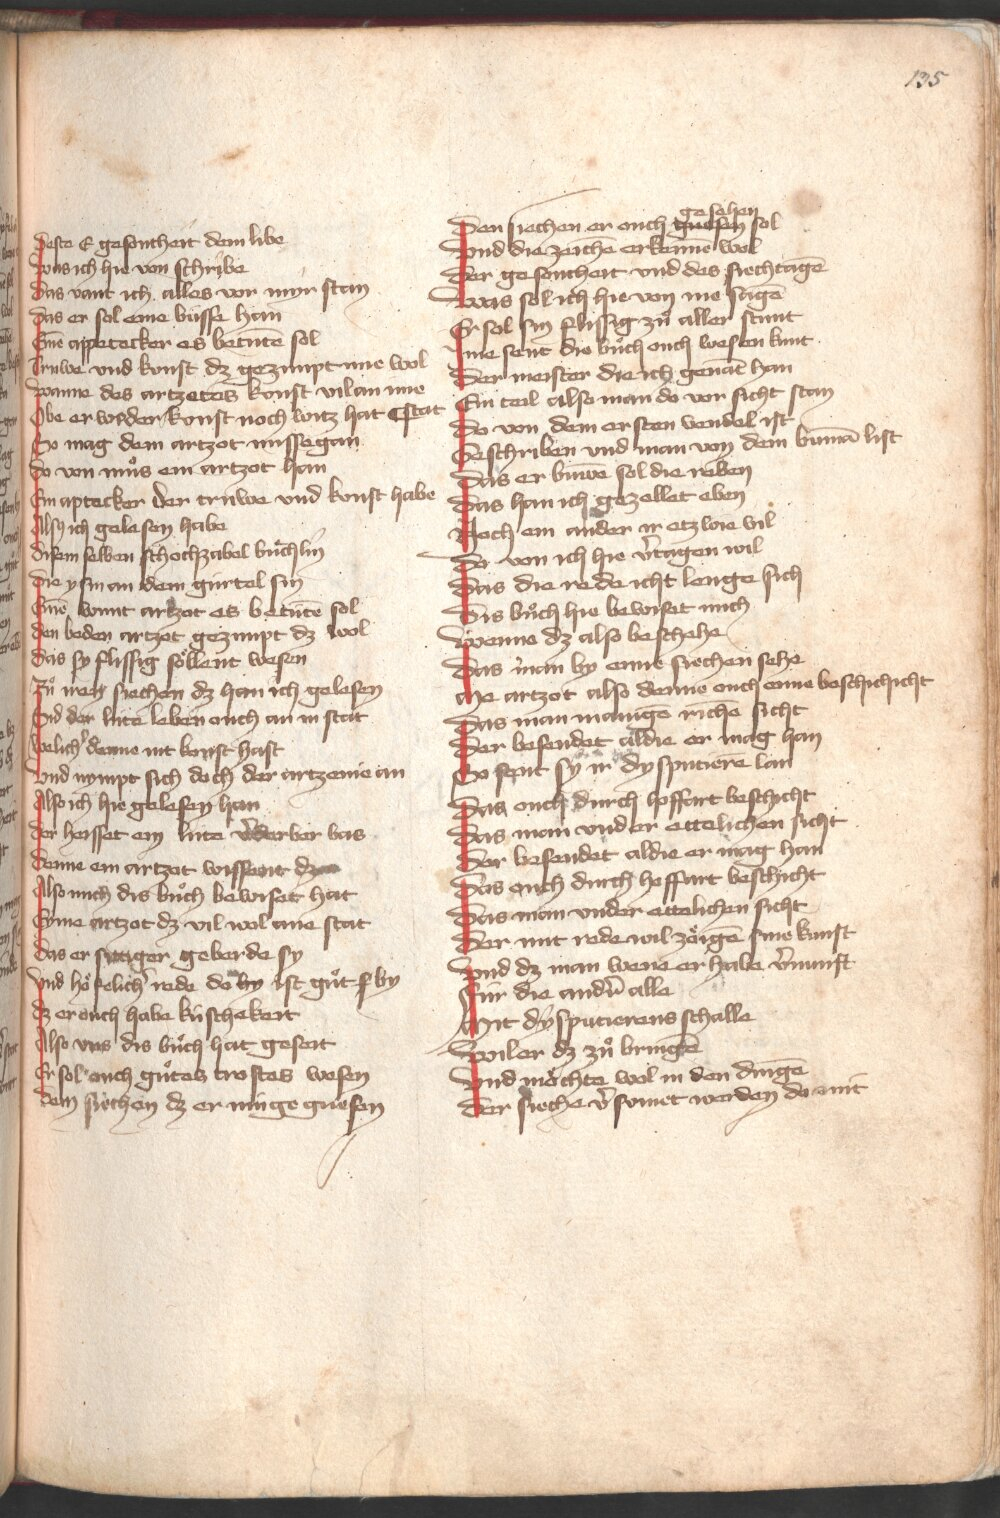 135
Deste E gesontheit dem libe
Was ich hie von schribe
Das vant ich alles vor myr stan
Das er sol eine busse han
Eine appetecker es betutē sol
Truwe vnd konst dz gezimpt ime wol
Wanne des artzetes konst vil an ime stat
Obe er weder konst noch witz hat
So mag dem artzot missegan
Do von můs ein artzot han
Ein aptecker der truwe vnd konst habe
Als ich gelesen habe
Disem selben schochzabel bůchlin
Die ysin an dem gurtel sin
Eine wunt artzot es betutē sol
Den beden artzot gezimpt dz wol
Das sy flissig söllent wesen
Zů iren siechen dz han ich gelesen
Sid der lute leben ouch an in stat
Welich denne nit konst hast
Vnd nympt sich doch der artzenie an
Also ich hie gelesen han
Der heisset ein lute vderber bas
Denne ein artzot wissent
Also mich dis bůch bewiset hat
Eyme artzot dz vil wol ane stat
Das er geberde sy
Vnd höfelich rede do by ist gůt
Dz er ouch habe kuschekeit
Also vns dis bůch hat geseit
Er sol ouch gůtes trostes wesen
Dem siechen dz er muge guesen
Den siechen er ouch gesehen sol
Vnd die zeichē erkennē wol
Der gesontheit vnd des siechtagē
Was sol ich hie von me sagē
Er sol sin flissig zů aller stunt
Ime sent die bůch ouch wesen kunt
Der meister die ich genāt han
Ein teil also man do vor sicht stan
Do von dem ersten vendel ist
Geschriben vnd man von dem bumā list
Das er buwē sol die reben
Das han ich gezellet eben
Noch ein ander ir etzwie vil
Do von ich hie v̄tagen wil
Das die rede icht lenge sich
Dis bůch hie bewiset mich
Wenne dz also beschehe
Das man by eime siechen sehe
Me artzot also denne ouch eine beschichicht
Das man manigē richē sicht
Der besendet aldie er mag han
So sent sy ir dysputierē lan
Das ouch durch hoffart beschicht
Das man vnder ettelichen sicht
Der besendet aldie er mag han
Das ouch durch hoffart beschicht
Das man vnder ettelichen sicht
Der mit rede wil zöigē sine kunst
Vnd dz man wene er habe v̄nunft
Für die andn̄ alle
Mit dysputierens schalle
Wil er dz zů bringē
Vnd möchte wol in den dingē
Der sieche v̄sumet werden do mit